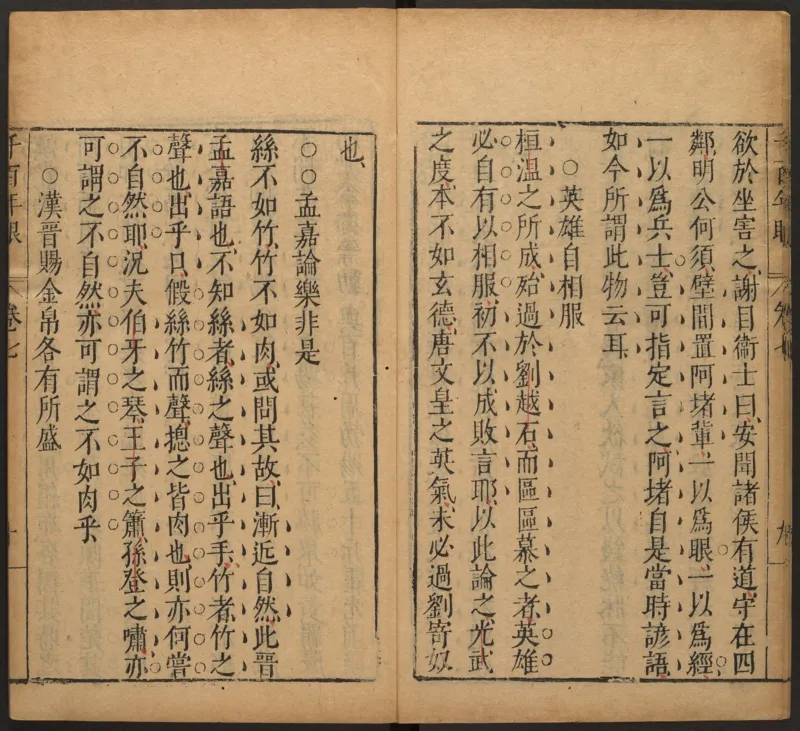 欲於坐害之謝目衛士曰安聞諸侯有道守在四
鄰明公何須壁間置阿堵輩一以爲眼一以爲經
一以爲兵士豈可指定言之阿堵自是當時諺語
如今所謂此物云耳
○英雄自相服
桓温之所成殆過於劉越石而區區慕之者英雄
必自有以相服初不以成敗言耶以此論之光武
之度本不如玄德唐文皇之英氣未必過劉寄奴
也
○○孟嘉論樂非是
絲不如竹竹不如肉或問其故曰漸近自然此晉
孟嘉語也不知絲者絲之聲也出乎手竹者竹之
聲也出乎口假絲竹而聲揔之皆肉也則亦何嘗
不自然耶況夫伯牙之琴王子之簫孫登之嘯亦
可謂之不自然亦可謂之不如肉乎
○漢晉賜金帛各有所盛
千百年眼 卷七